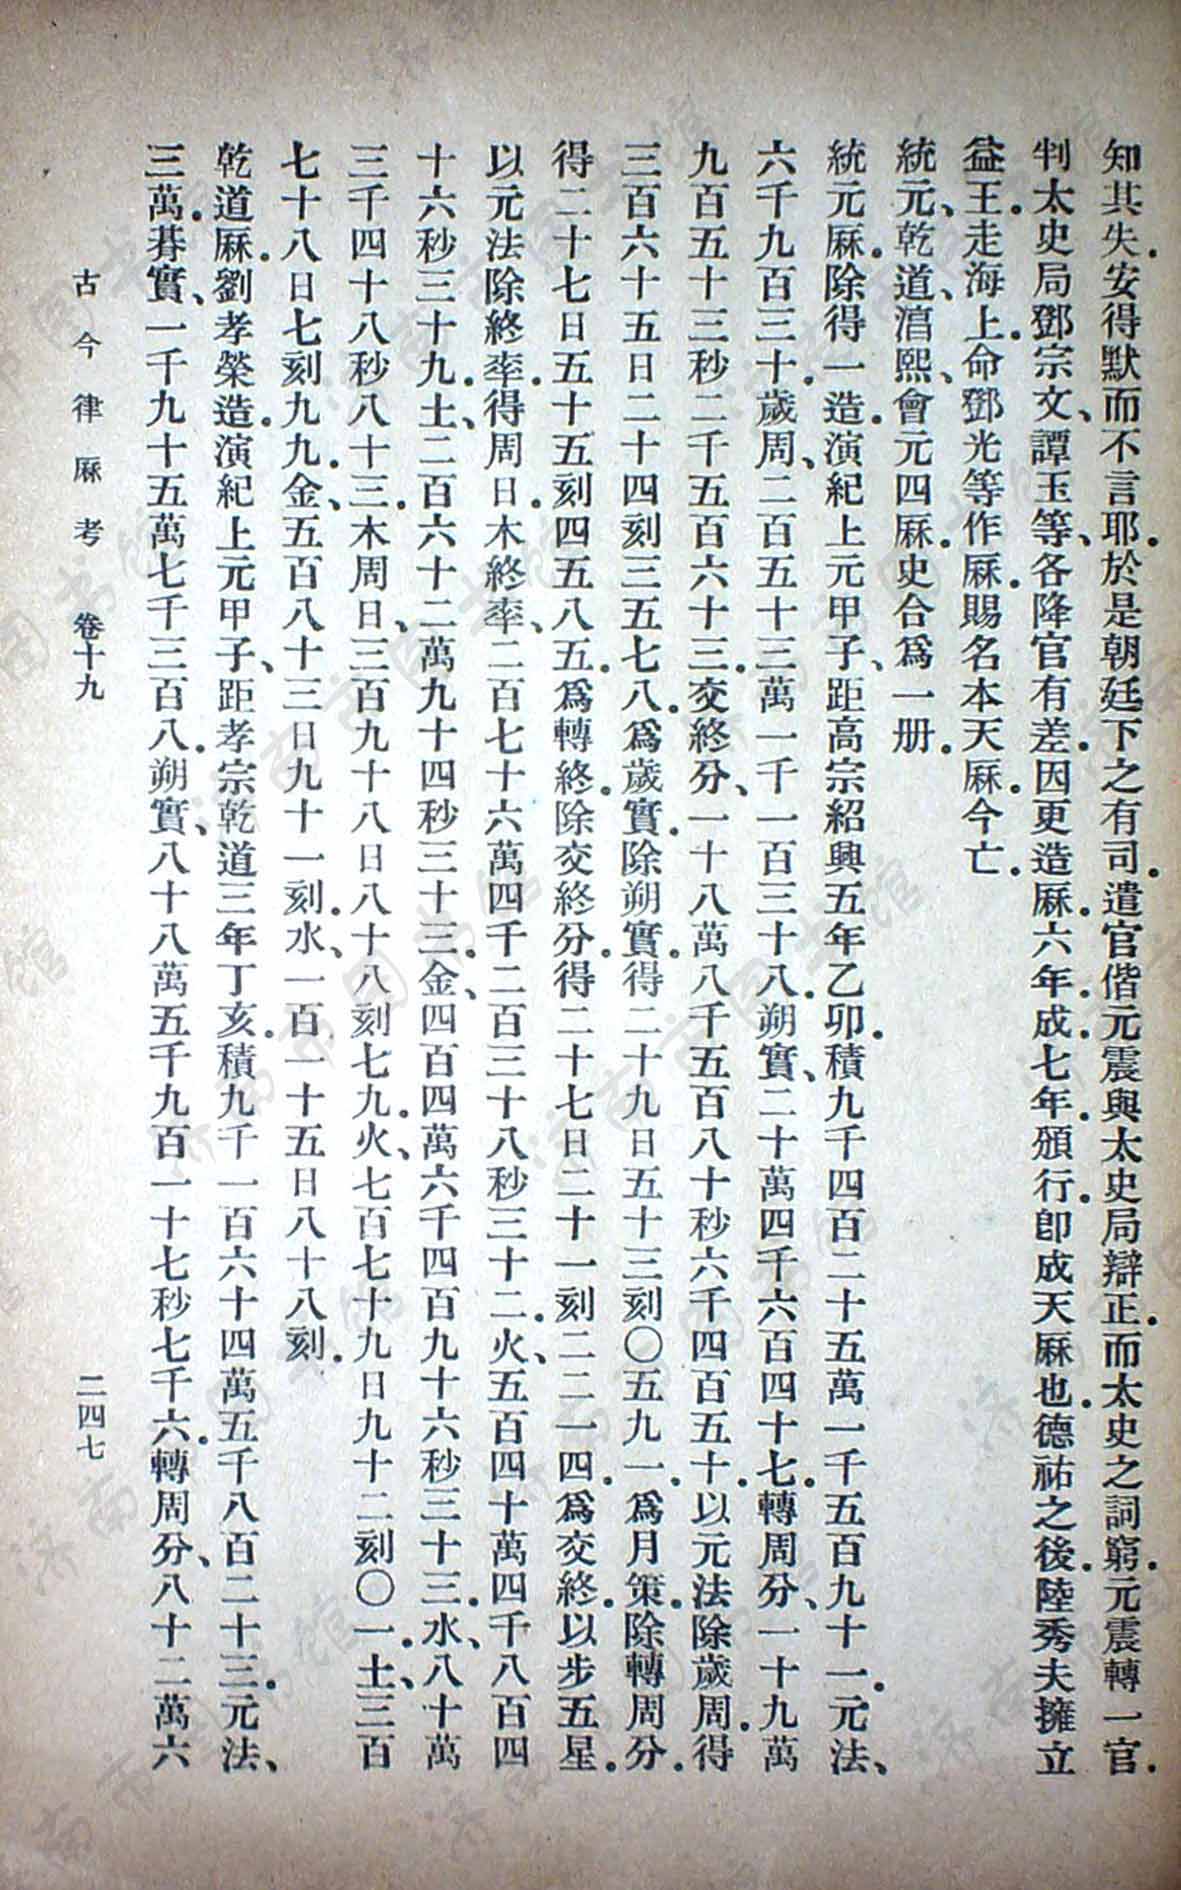 知其失。安得默而不言耶。於是朝廷下之有司。遣官偕元震與太史局辯正。而太史之詞窮。元震轉一官。
判太史局鄧宗文、譚玉等、各降官有差。因更造厤。六年成。七年頒行。卽成天厤也。德祐之後。陸秀夫擁立
益王。走海上。命鄧光等作厤。賜名本天厤。今亡。
統元、乾道、湻熙、會元四厤。史合爲一册。
統元厤。陳得一造。演紀上元甲子、距高宗紹興五年乙卯。積九千四百二十五萬一千五百九十一。元法、
六千九百三十。歲周、二百五十三萬一千一百三十八。朔實、二十萬四千六百四十七。轉周分、一十九萬
九百五十三秒二千五百六十三。交終分、一十八萬八千五百八十秒六千四百五十。以元法除歲周。得
三百六十五日二十四刻三五七八。爲歲實。除朔實。得二十九日五十三刻〇五九一。爲月策。除轉周分。
得二十七日五十五刻四五八五。爲轉終。除交終分。得二十七日二十一刻二二一四。爲交終。以步五星。
以元法除終率。得周日。木終率、二百七十六萬四千二百三十八秒三十二。火、五百四十萬四千八百四
十六秒三十九。土、二百六十二萬九十四秒三十三。金、四百四萬六千四百九十六秒三十三。水、八十萬
三千四十八秒八十三。木周日、三百九十八日八十八刻七九。火、七百七十九日九十二刻〇一。土、三百
七十八日七刻九九。金、五百八十三日九十一刻。水、一百一十五日八十八刻。
乾道厤。劉孝榮造。演紀上元甲子、距孝宗乾道三年丁亥。積九千一百六十四萬五千八百二十三。元法、
三萬。朞實、一千九十五萬七千三百八。朔實、八十八萬五千九百一十七秒七千六。轉周分、八十二萬六
古今律厤考 卷十九 二四七